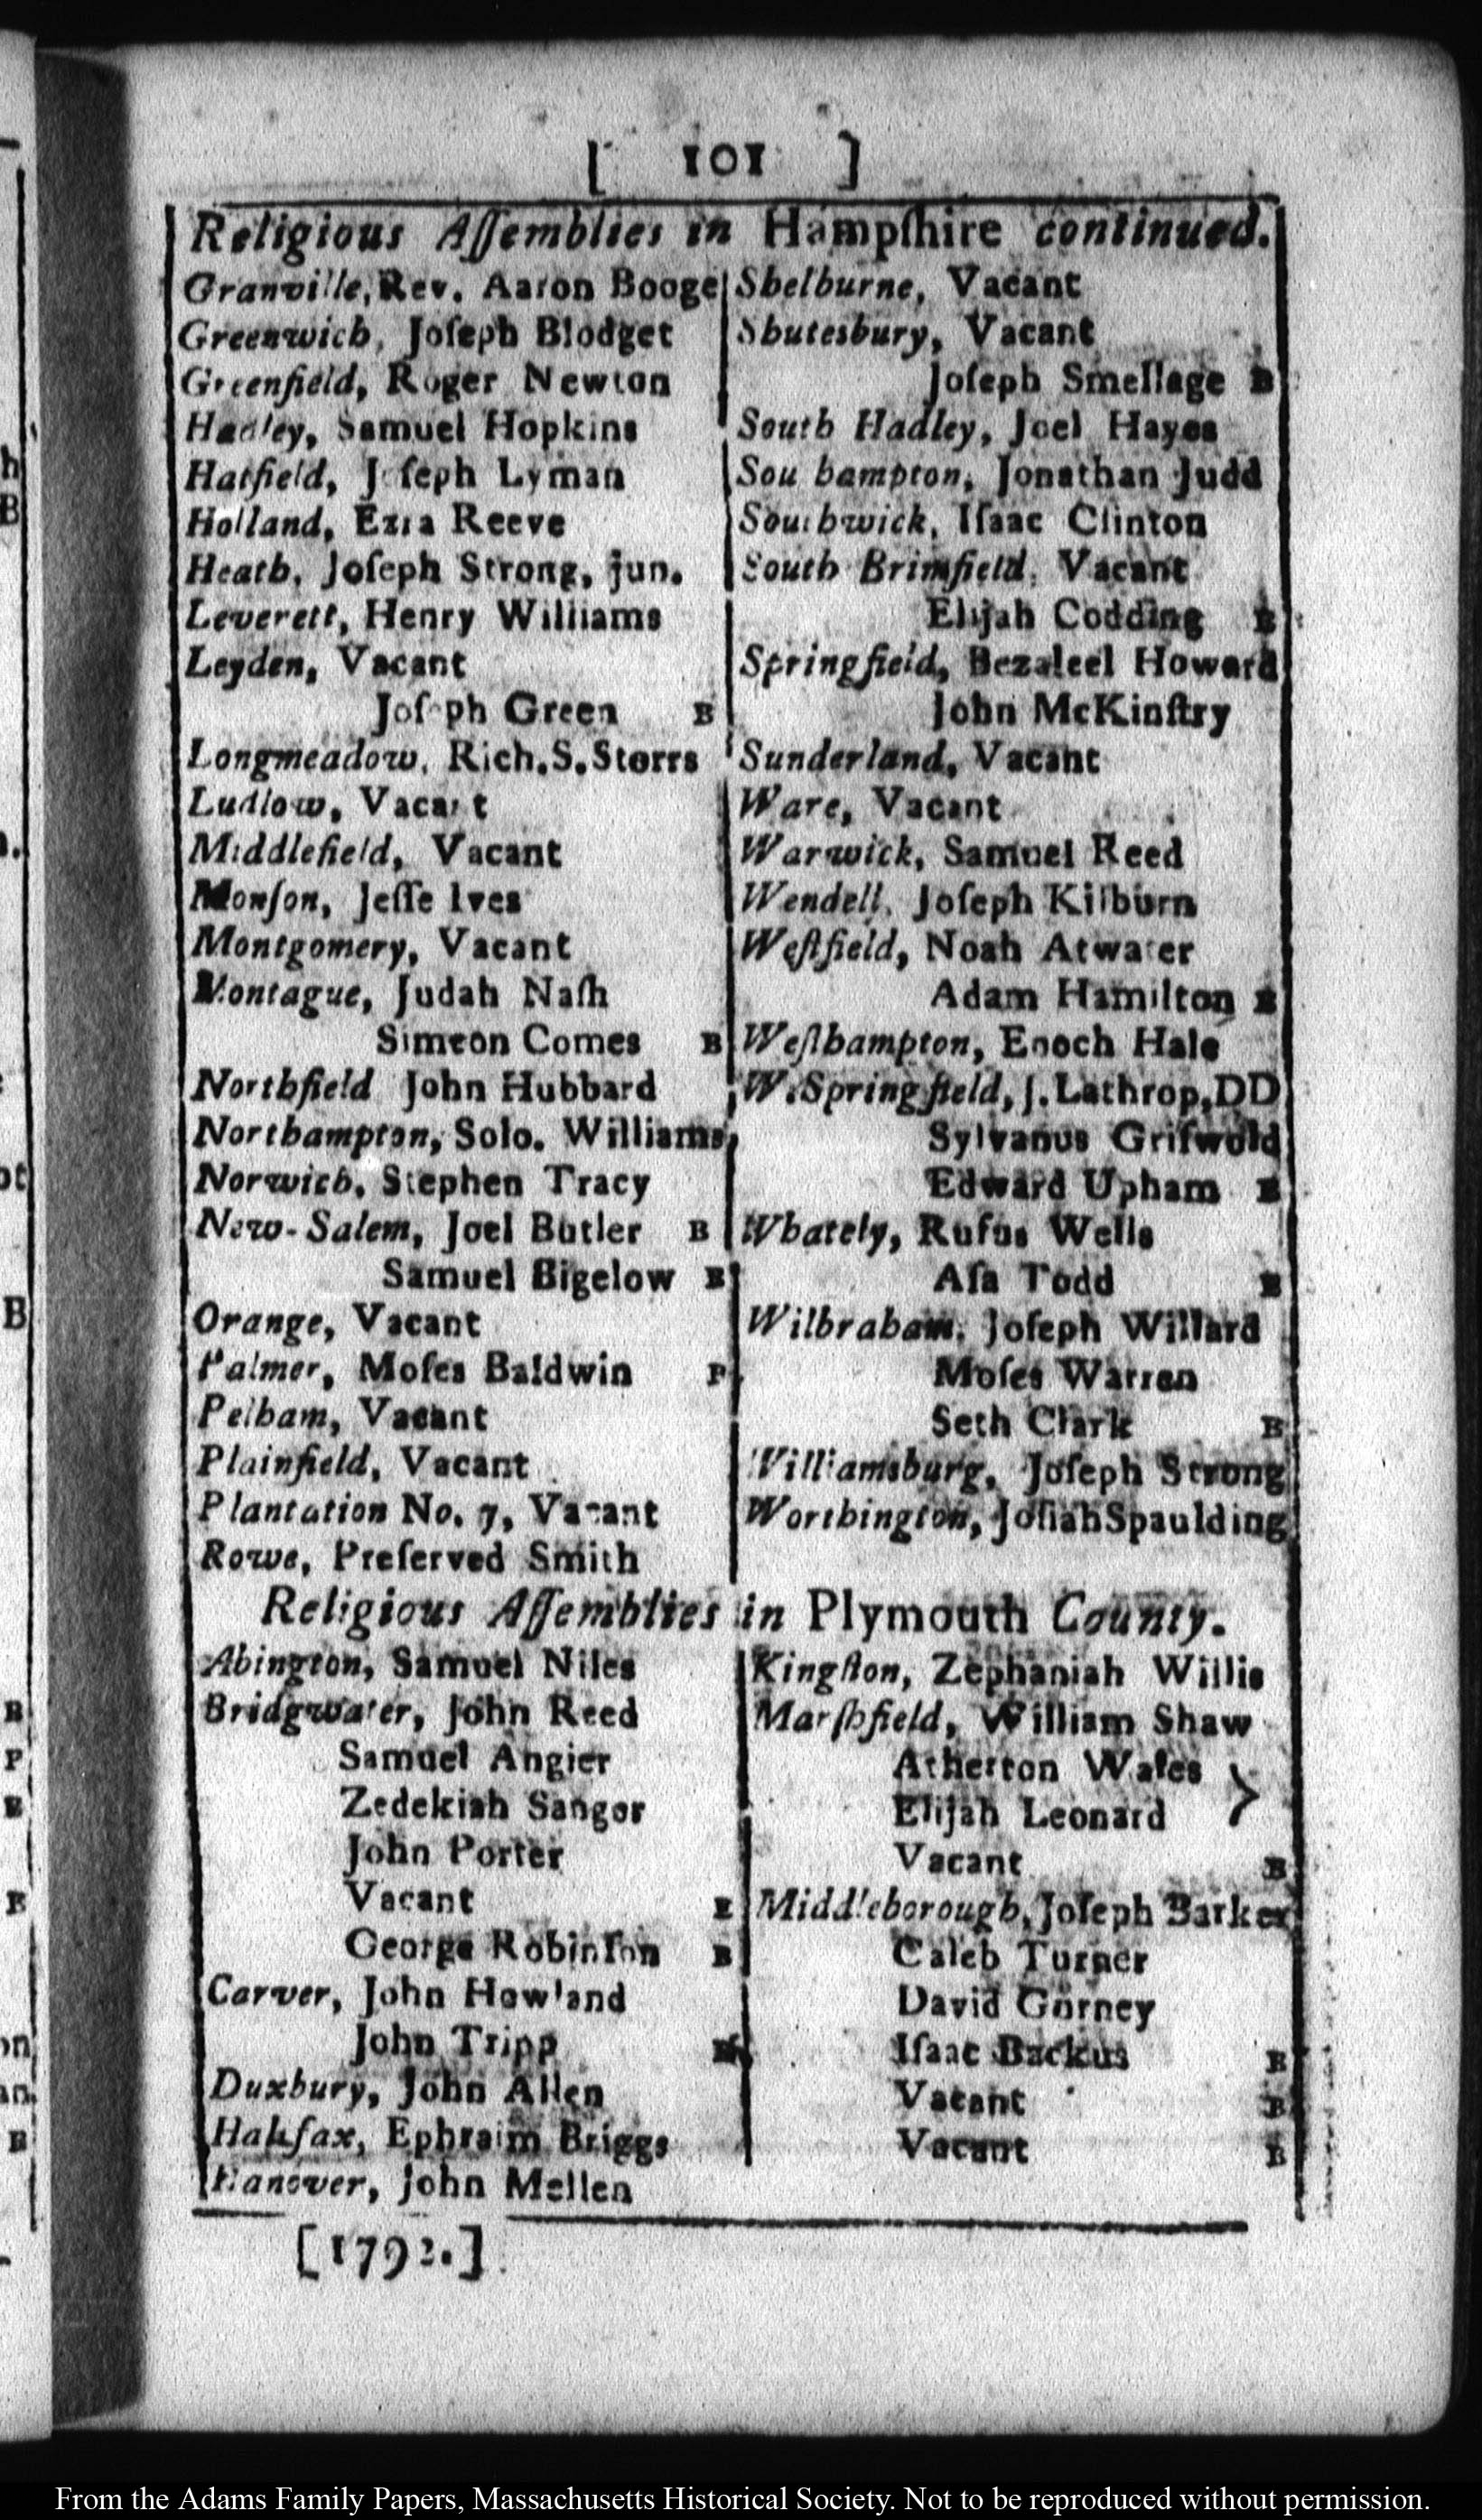 [ 101 ]
Religious Aſſemblies in Hampſhire continued.
Granville, Rev. Aaron Booge
Greenwich, Joſeph Blodget
Greenfield, Roger Newton
Hadley, Samuel Hopkins
Hatfield, Joſeph Lyman
Holland, Ezra Reeve
Heath, Joſeph Strong, jun.
Leverett, Henry Williams
Leyden, Vacant
Joſeph Green B
Longmeadow, Rich. S. Storrs
Ludlow, Vacant
Middlefield, Vacant
Monſon, Jeſſe Ives
Montgomery, Vacant
Montague, Judah Naſh
Simeon Comes B
Northfield John Hubbard
Northampton, Solo. Williams,
Norwich, Stephen Tracy
New-Salem, Joel Butler B
Samuel Bigelow B
Orange, Vacant
Palmer, Moſes Baldwin P
Pelham, Vacant
Plainfield, Vacant
Plantation No. 7, Vacant
Rowe, Preſerved Smith
Shelburne, Vacant
Shutesbury, Vacant
Joſeph Smellage B
South Hadley, Joel Hayes
Southampton, Jonathan Judd
Southwick, Iſaac Clinton
South Brimfield, Vacant
Elijah Codding B
Springfield, Bezaleel Howard
John McKinſtry
Sunderland, Vacant
Ware, Vacant
Warwick, Samuel Reed
Wendell, Joſeph Kilburn
Weſtfield, Noah Atwater
Adam Hamilton B
Weſthampton, Enoch Hale
W. Springfield, J. Lathrop, DD
Sylvanus Griſwold
Edward Upham B
Whately, Rufus Wells
Aſa Todd B
Wilbraham, Joſeph Willard
Moſes Warren
Seth Clark B
Williamsburg, Joſeph Strong
Worthington, Joſiah Spaulding
Religious Aſſemblies in Plymouth County.
Abington, Samuel Niles
Bridgwater, John Reed
Samuel Angier
Zedekiah Sanger
John Porter
Vacant E
George Robinſon B
Carver, John Howland
John Tripp B
Duxbury, John Allen
Halifax, Ephraim Briggs
Hanover, John Mellen
Kingſton, Zephaniah Willis
Marſhfield, William Shaw
Atherton Wales }
Elijah Leonard
Vacant B
Middleborough, Joſeph Barker
Caleb Turner
David Gurney
Iſaac Backus B
Vacant B
Vacant B
[1792.]
From the Adams Family Papers, Massachusetts Historical Society. Not to be reproduced without permission.